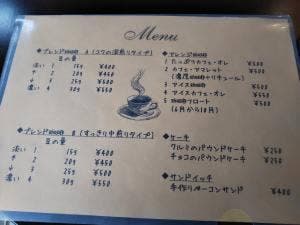 Menu
◆ブレンド珈琲 A (コクの深煎りタイプ)
豆の量
淡い 1 15g ¥400
↑ 2 20g ¥450
↓ 3 25g ¥500
濃い 4 30g ¥550
◆ブレンド珈琲 B (すっきり中煎りタイプ)
豆の量
淡い 1 15g ¥400
↑ 2 20g ¥450
↓ 3 25g ¥500
濃い 4 30g ¥550
◆アレンジ珈琲
1 たっぷりカフェ・オレ ¥500
2 カフェ・アマレット ¥500
(濃厚珈琲+リキュール)
3 アイス珈琲 ¥500
4 アイスカフェ・オレ ¥550
5 珈琲フロート ¥650
(6月から10月)
◆ケーキ
クルミのパウンドケーキ ¥250
チョコのパウンドケーキ ¥250
◆サンドイッチ
手作りベーコンサンド ¥400